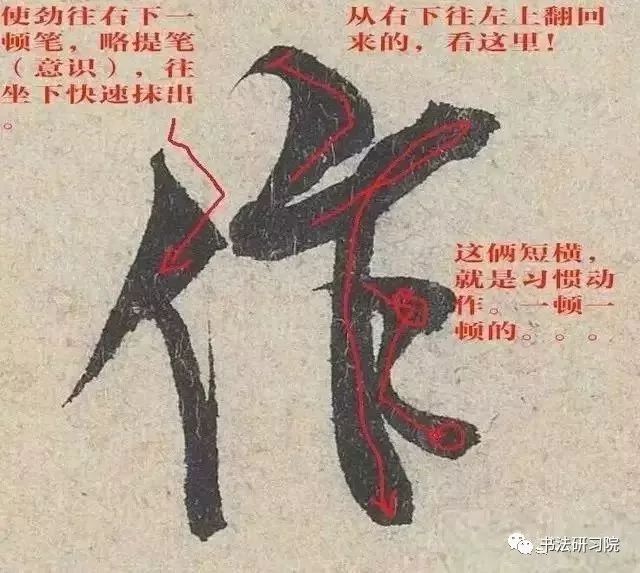 使劲往右下一
顿笔，略提笔
（意识），往
坐下快速抹出
。
从右下往左上翻回
来的，看这里！
作
这俩短横，
就是习惯动
作。一顿一
顿的。。。
书法研习院